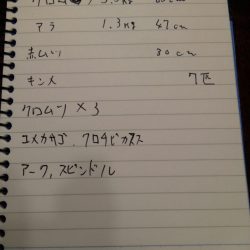 クロムツ 3.3kg 60cm
アラ 1.3kg 47cm
赤ムツ 30cm
キンメ 7匹
クロムツ×3
ユメカサゴ、クロシビカマス
アーク、スピンドル